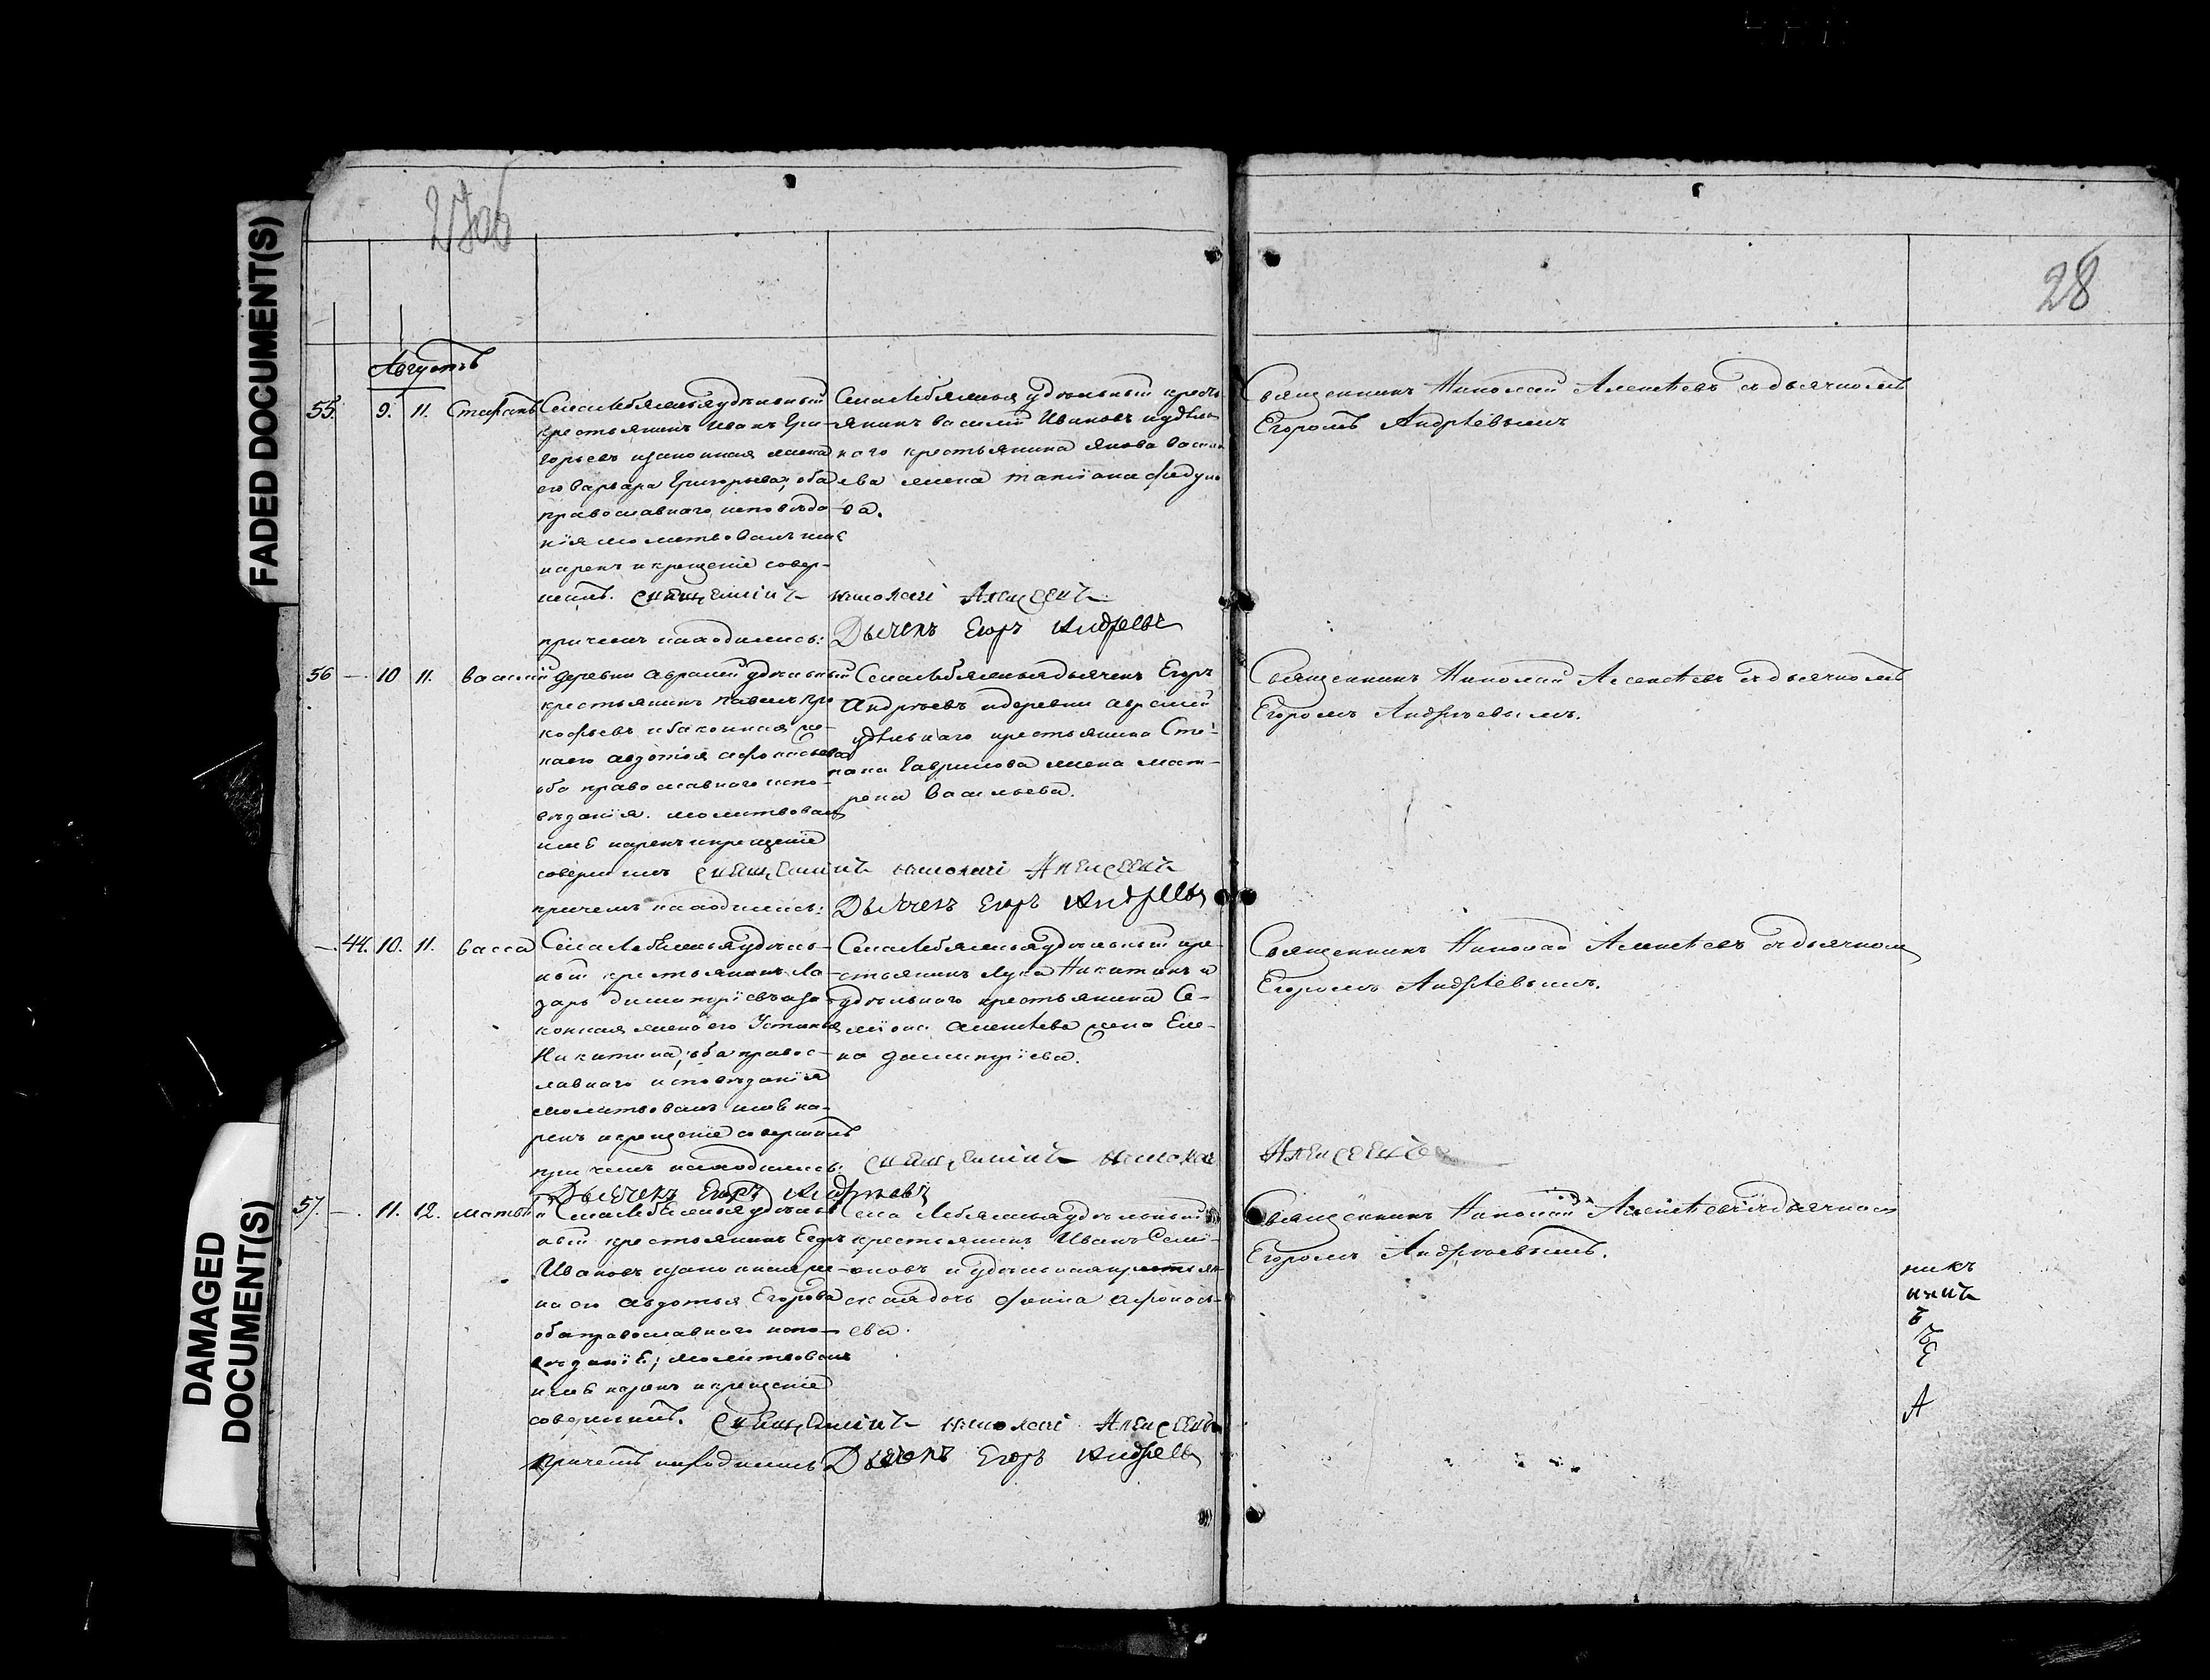 27об
28
FADED DOCUMENT(S)
DAMAGED DOCUMENT(S)
Августъ
55. 9. 11. Стефанъ
Села Лебяжья удѣльный
крестьянинъ Иванъ Гри-
горьевъ и законная жена
его Варвара Григорьева, оба
православнаго исповѣда-
нія молитвовалъ имя
нарекъ и крещеніе совер-
шилъ. Священникъ Николай Алексѣевъ
при чемъ находились: Дьячекъ Егоръ Андреевъ
Села Лебяжья удѣльный кресть
янинъ Василій Ивановъ и удѣль
наго крестьянина Якова Василь
ева жена
ва.
Священникъ Николай Алексѣевъ съ дьячкомъ
Егоромъ Андрѣевымъ
56 — 10 11. Василій
деревни удѣльный
крестьянинъ Павелъ Про
кофьевъ и законная же-
на его Авдотья Афонасьева
оба православнаго испо-
вѣданія. молитвовалъ
имя нарекъ и крещеніе
совершилъ Священникъ Николай Алексѣевъ
при чемъ находились: Дьячекъ Егоръ Андреевъ
Села Лебяжья дьячекъ Егоръ
Андрѣевъ и деревни
удѣльнаго крестьянина Сте-
пана Гаврилова жена Мат-
рена Васильева.
Священникъ Николай Алексѣевъ съ дьячкомъ
Егоромъ Андрѣевымъ.
— 44. 10. 11. Васса
Села Лебяжья удѣль-
ный крестьянинъ Ла-
зарь Димитріевъ и за-
конная жена его Устинья
Никитина, оба правос-
лавнаго исповѣданія
молитвовалъ имя на-
рекъ и крещеніе совершилъ
при чемъ находились: Священникъ Николай Алексѣевъ
Дьячекъ Егоръ Андрѣевъ
Села Лебяжья удѣльный кре-
стьянинъ Лука Никитинъ и
удѣльнаго крестьянина Се-
міона Алексѣева жена Еле-
на Димитріева.
Священникъ Николай Алексѣевъ съ дьячкомъ
Егоромъ Андрѣевымъ.
57. — 11. 12. Матвѣй
Села Лебяжья удѣль
ный крестьянинъ Егоръ
Ивановъ и законная же-
на его Авдотья Егорова
оба православнаго испо-
вѣданія; молитвовалъ
имя нарекъ и крещеніе
совершилъ. Священникъ Николай Алексѣевъ
При чемъ находились Дьячекъ Егоръ Андреевъ
Села Лебяжья удѣльный
крестьянинъ Иванъ Семі-
оновъ и удѣльная крестьян
ская дочь Афонась-
ева.
Священникъ Николай Алексѣевъ съ дьячкомъ
Егоромъ Андрѣевымъ.